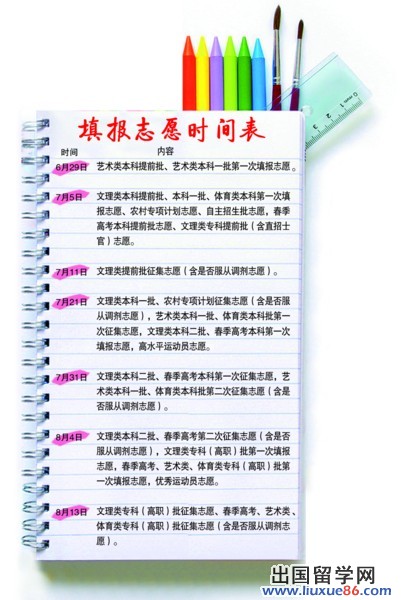 填报志愿时间表
时间 内容
6月29日 艺术类本科提前批、艺术类本科一批第一次填报志愿。
7月5日 文理类本科提前批、本科一批、体育类本科第一次填
报志愿、农村专项计划志愿、自主招生批志愿，春季
高考本科提前批志愿、文理类专科提前批（含直招士
官）志愿。
7月11日 文理类提前批征集志愿（含是否服从调剂志愿）。
7月21日 文理类本科一批、农村专项计划征集志愿（含是否服
从调剂志愿），艺术类本科一批、体育类本科批第一
次征集志愿，文理类本科二批、春季高考本科第一次
填报志愿，高水平运动员志愿。
7月31日 文理类本科二批、春季高考本科第一次征集志愿，艺
术类本科一批、体育类本科批第二次征集志愿（含是
否服从调剂志愿）。
8月4日 文理类本科二批、春季高考第二次征集志愿（含是否
服从调剂志愿），文理类专科（高职）批第一次填报
志愿，春季高考、艺术类、体育类专科（高职）批第
一次填报志愿，优秀运动员志愿。
8月13日 文理类专科（高职）批征集志愿、春季高考、艺术类、
体育类专科（高职）批征集志愿（含是否服从调剂志
愿）。
出国留学网
www.liuxue86.com